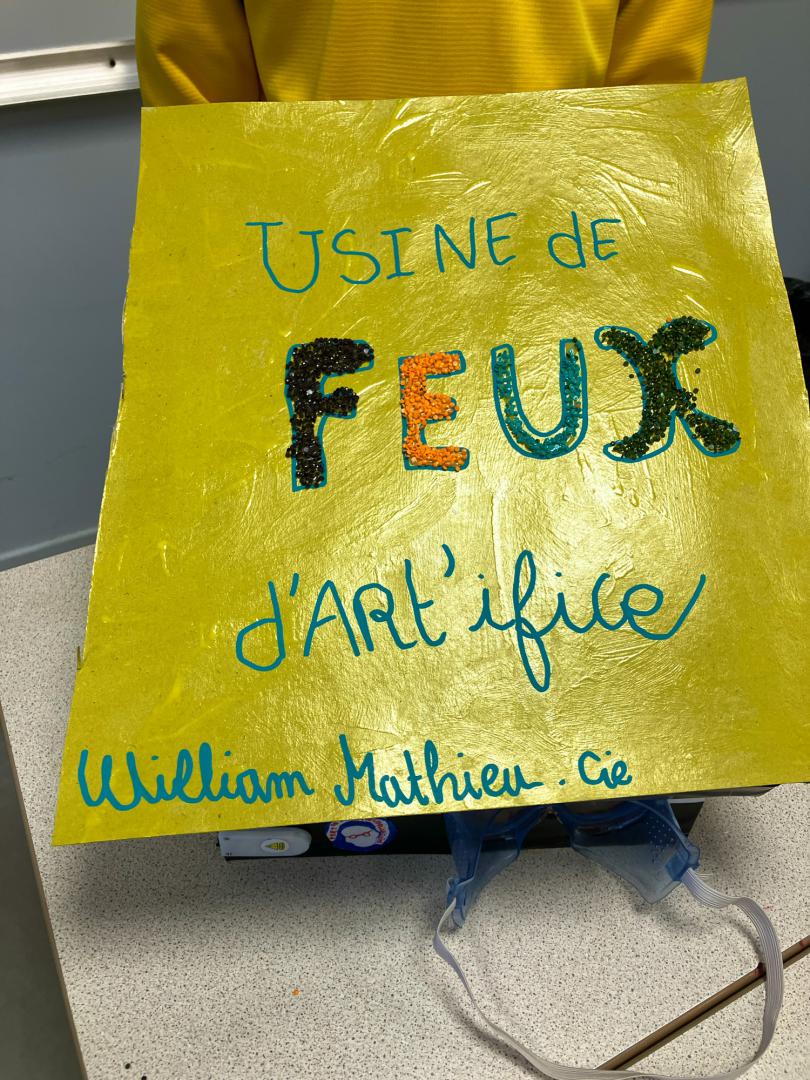 USINE dE
FEUX
d'ARt'ifice
William Mathieu. Cie